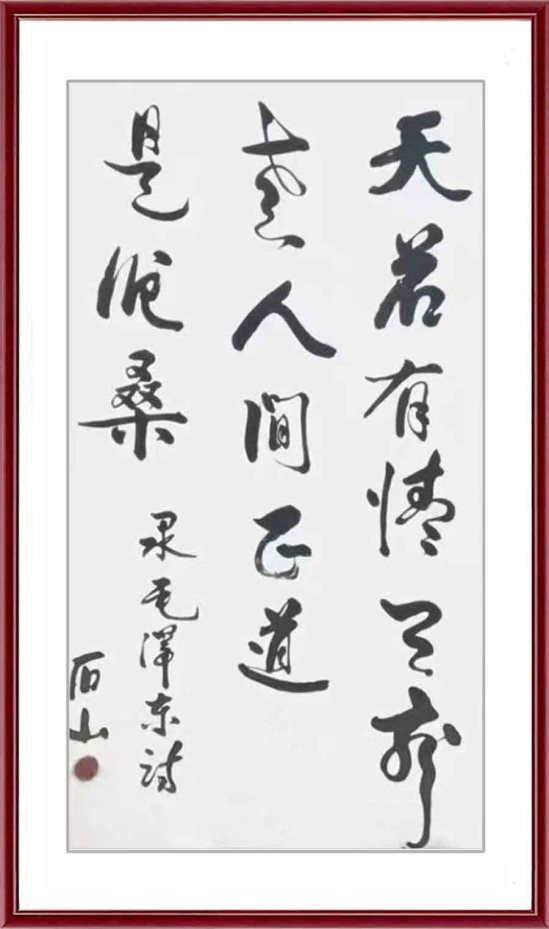 天若有情天亦
老人间正道
是沧桑
录毛泽东诗
石山